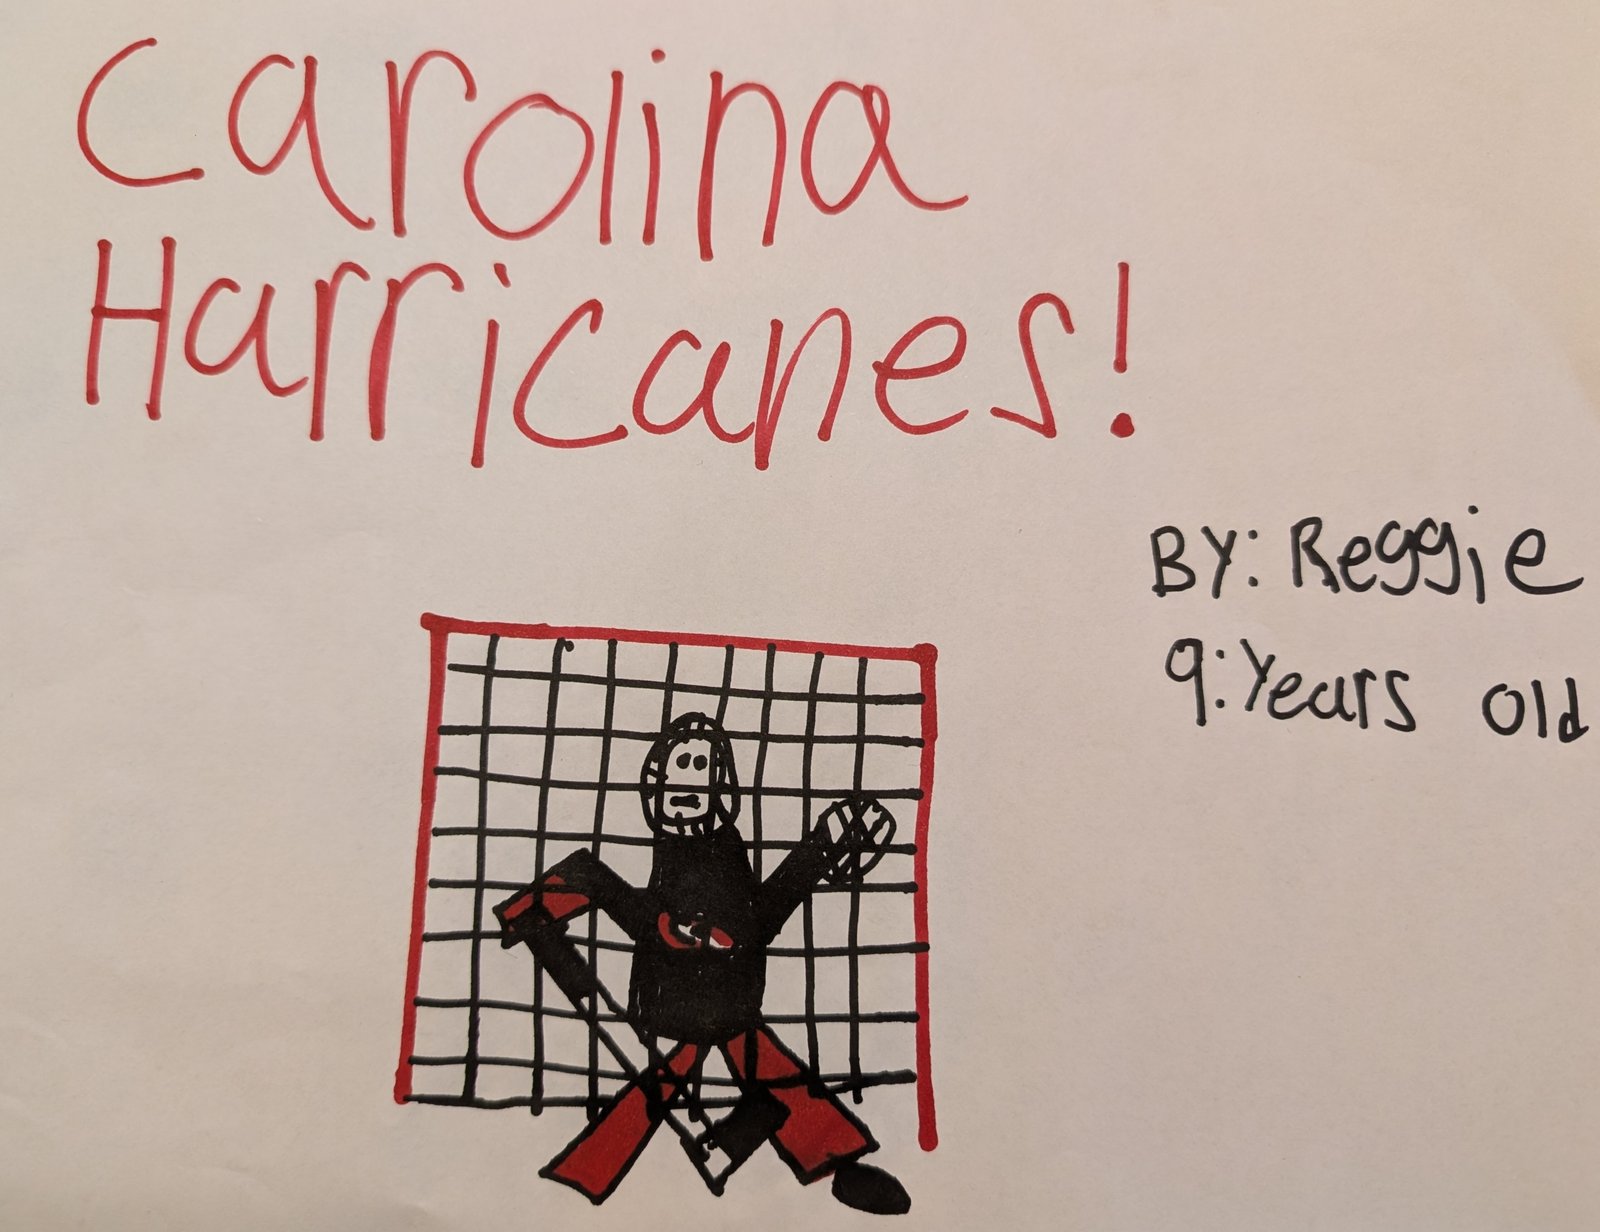 Carolina
Harricanes!
BY: Reggie
9: Years old